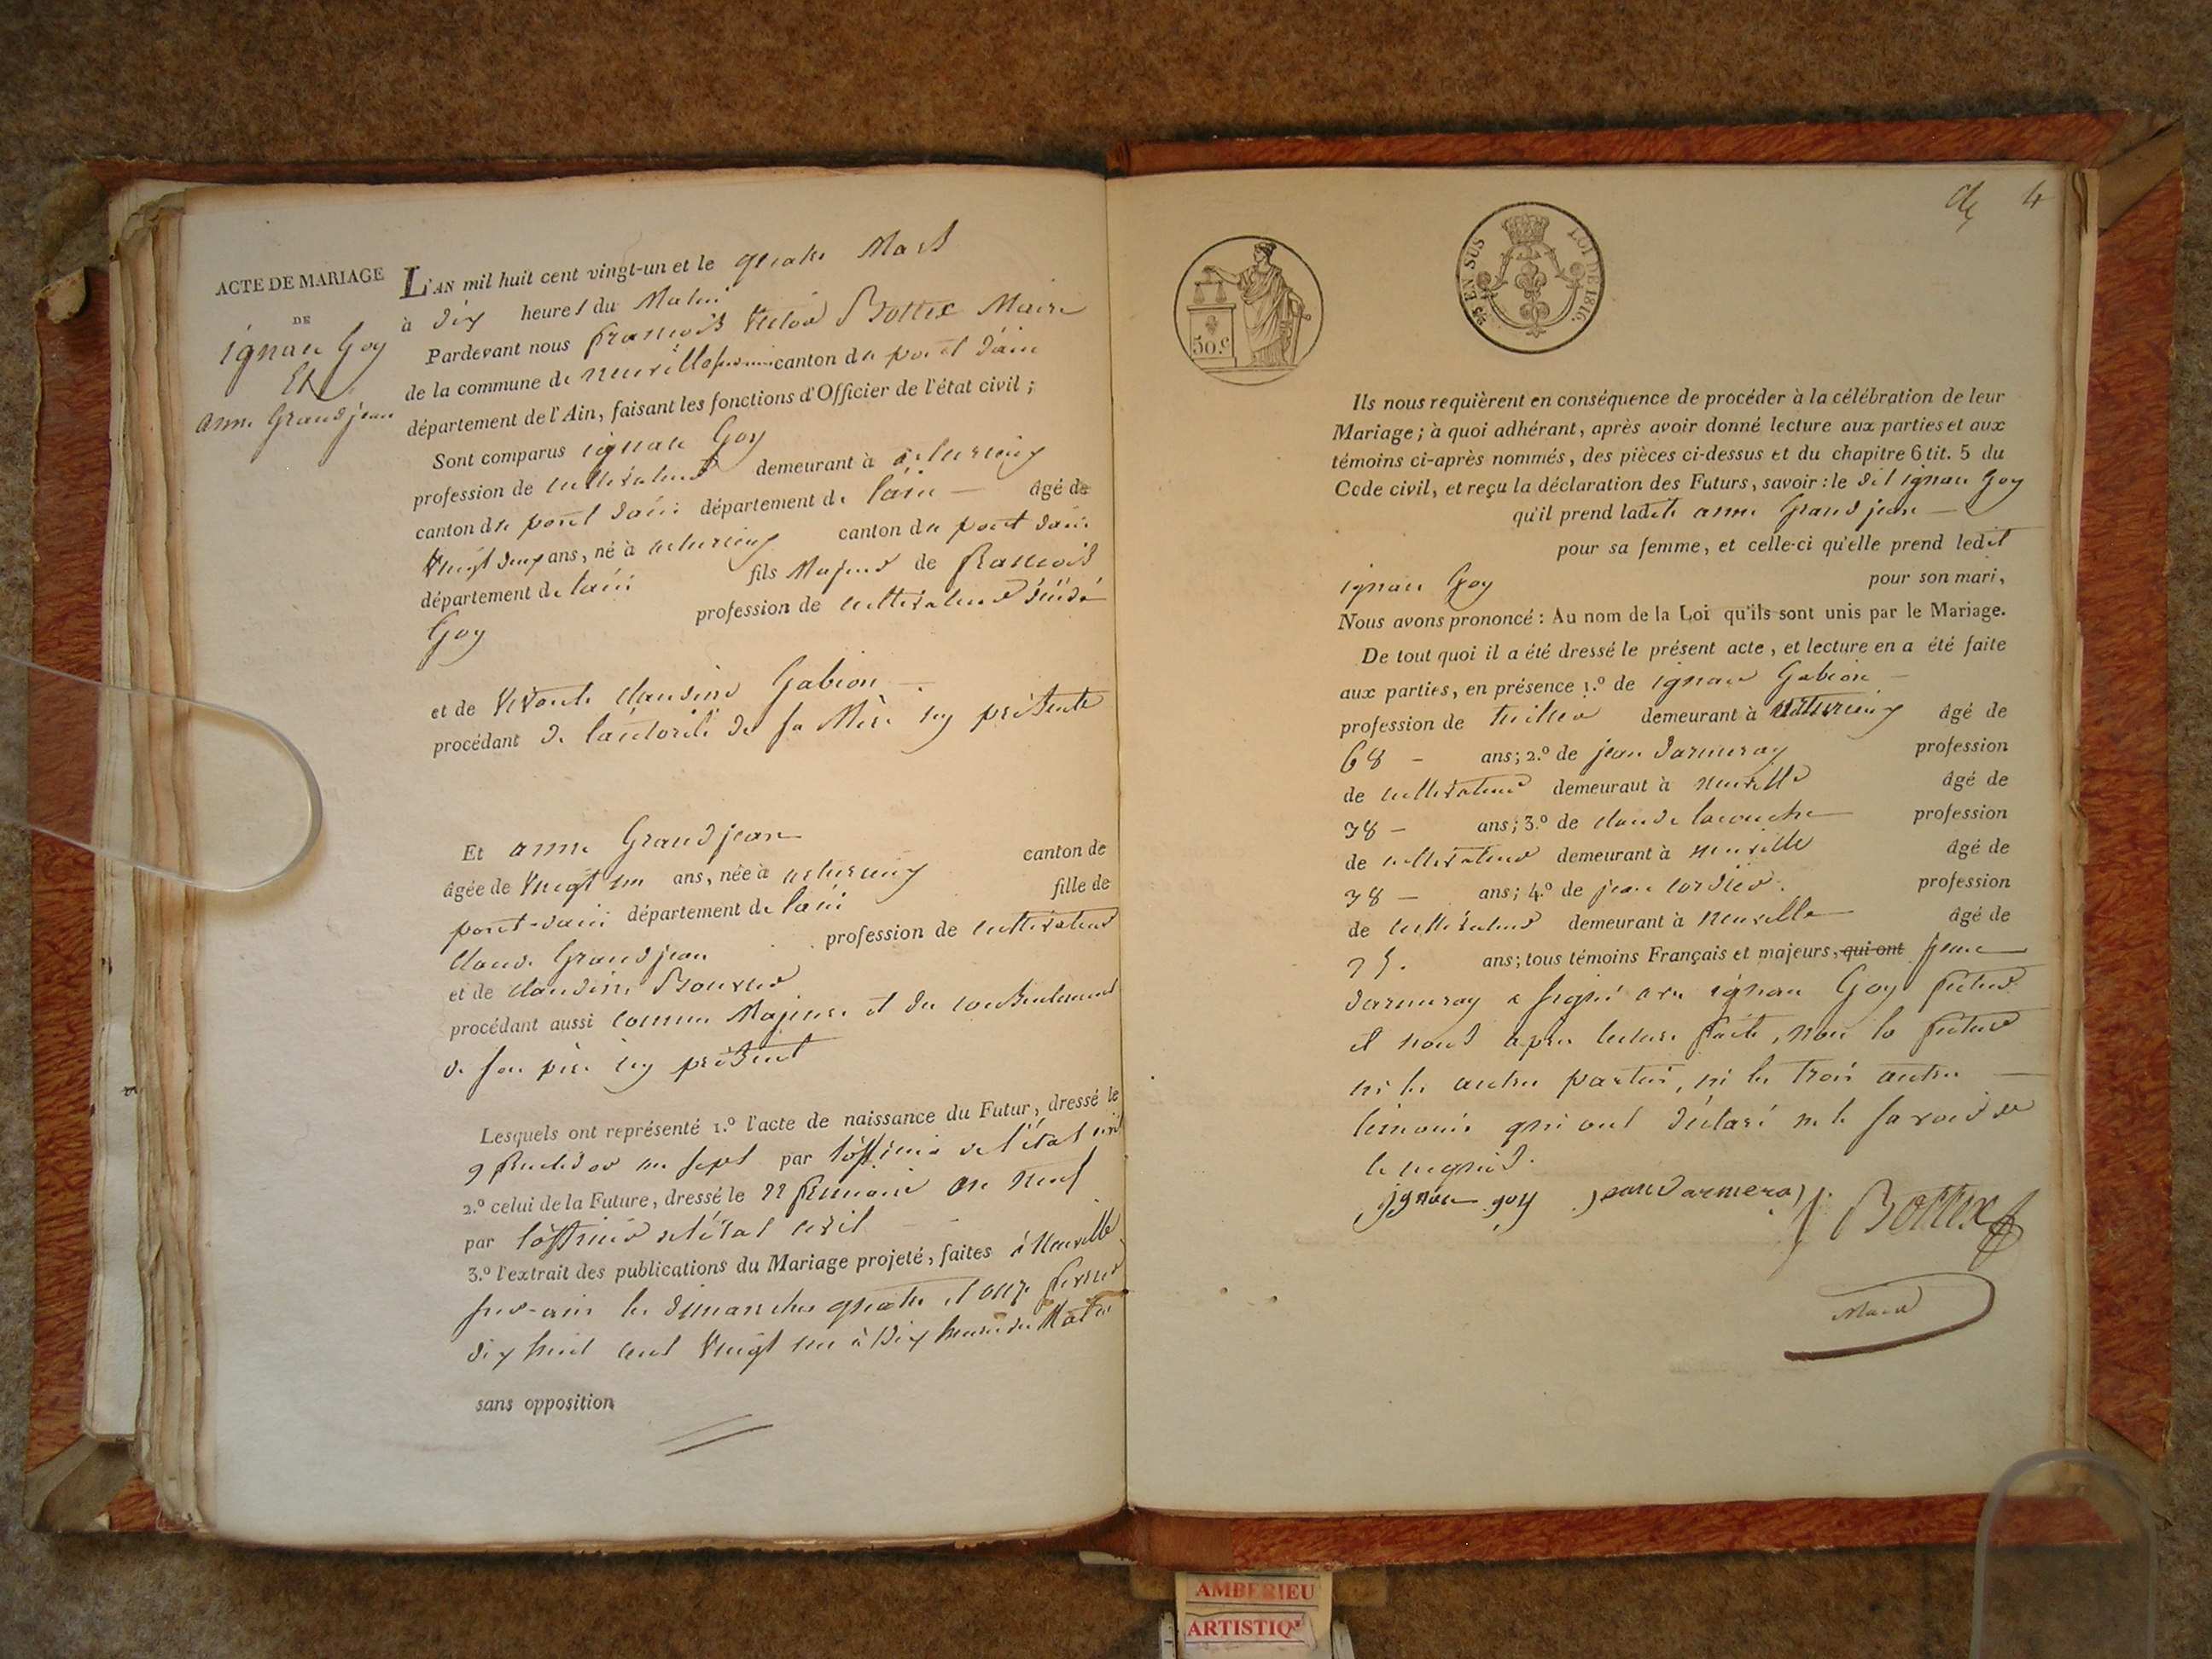 ACTE DE MARIAGE
DE
ignace Goy
Et
anne Grandjean
L'AN mil huit cent vingt-un et le quatre Mars
à dix heures du Matin
Pardevant nous francois Victor Bottex Maire
de la commune de neuville sur ain canton de pont d'ain
département de l'Ain, faisant les fonctions d'Officier de l'état civil ;
Sont comparus ignace Goy
profession de cultivateur demeurant à
canton de pont dain département de lain — âgé de
Vingt deux ans, né à canton de pont dain
département de lain fils Majeur de francois
Goy profession de cultivateur décédé
et de Vivante claudine Gabion —
procédant de lautorité de sa Mère icy présente
Et anne Grandjean
âgée de Vingt un ans, née à canton de
pont-dain département de lain fille de
claude Grandjean profession de cultivateur
et de claudine Bouvier
procédant aussi comme Majeure et du consentement
de son père icy présent
Lesquels ont représenté 1.º l'acte de naissance du Futur, dressé le
9 fructidor an sept par lofficier de l'état civil
2.º celui de la Future, dressé le 22 frimaire an neuf
par lofficier de létat civil
3.º l'extrait des publications du Mariage projeté, faites à Neuville
sur-ain les dimanches quatre et onze fevrier
dix huit cent Vingt un à Dix heures du Matin
sans opposition
4
50.c
25 EN SUS
LOI DE 1816.
Ils nous requièrent en conséquence de procéder à la célébration de leur
Mariage ; à quoi adhérant, après avoir donné lecture aux parties et aux
témoins ci-après nommés, des pièces ci-dessus et du chapitre 6 tit. 5 du
Code civil, et reçu la déclaration des Futurs, savoir : le dit ignace Goy
qu'il prend ladite anne Grand jean —
pour sa femme, et celle-ci qu'elle prend ledit
ignace Goy pour son mari,
Nous avons prononcé : Au nom de la Loi qu'ils sont unis par le Mariage.
De tout quoi il a été dressé le présent acte, et lecture en a été faite
aux parties, en présence 1.º de ignace Gabion —
profession de demeurant à âgé de
68 — ans ; 2.º de jean darmeray profession
de cultivateur demeurant à neuville âgé de
38 — ans ; 3.º de claude profession
de cultivateur demeurant à neuville âgé de
38 — ans ; 4.º de jean cordier. profession
de cultivateur demeurant à Neuville — âgé de
ans ; tous témoins Français et majeurs, qui ont jean
darmeray a signé avec ignace Goy futur
et nous apres lecture faite, non la future
ni les autres parties, ni les trois autres —
témoins qui ont déclaré ne le savoir de
ce requis.
ignace goy jean darmeray Bottex
Maire
AMBERIEU
ARTISTIQ